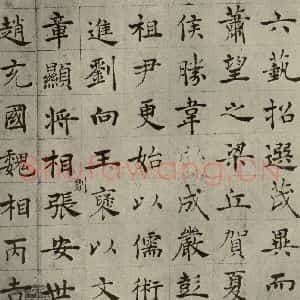 六藝招選茂異而
蕭望之梁丘賀夏
侯勝韋玄成嚴彭
祖尹更始以儒術
進劉向王褒以文
章顯將相張安世
趙充國魏相丙吉
Shufawang.CN